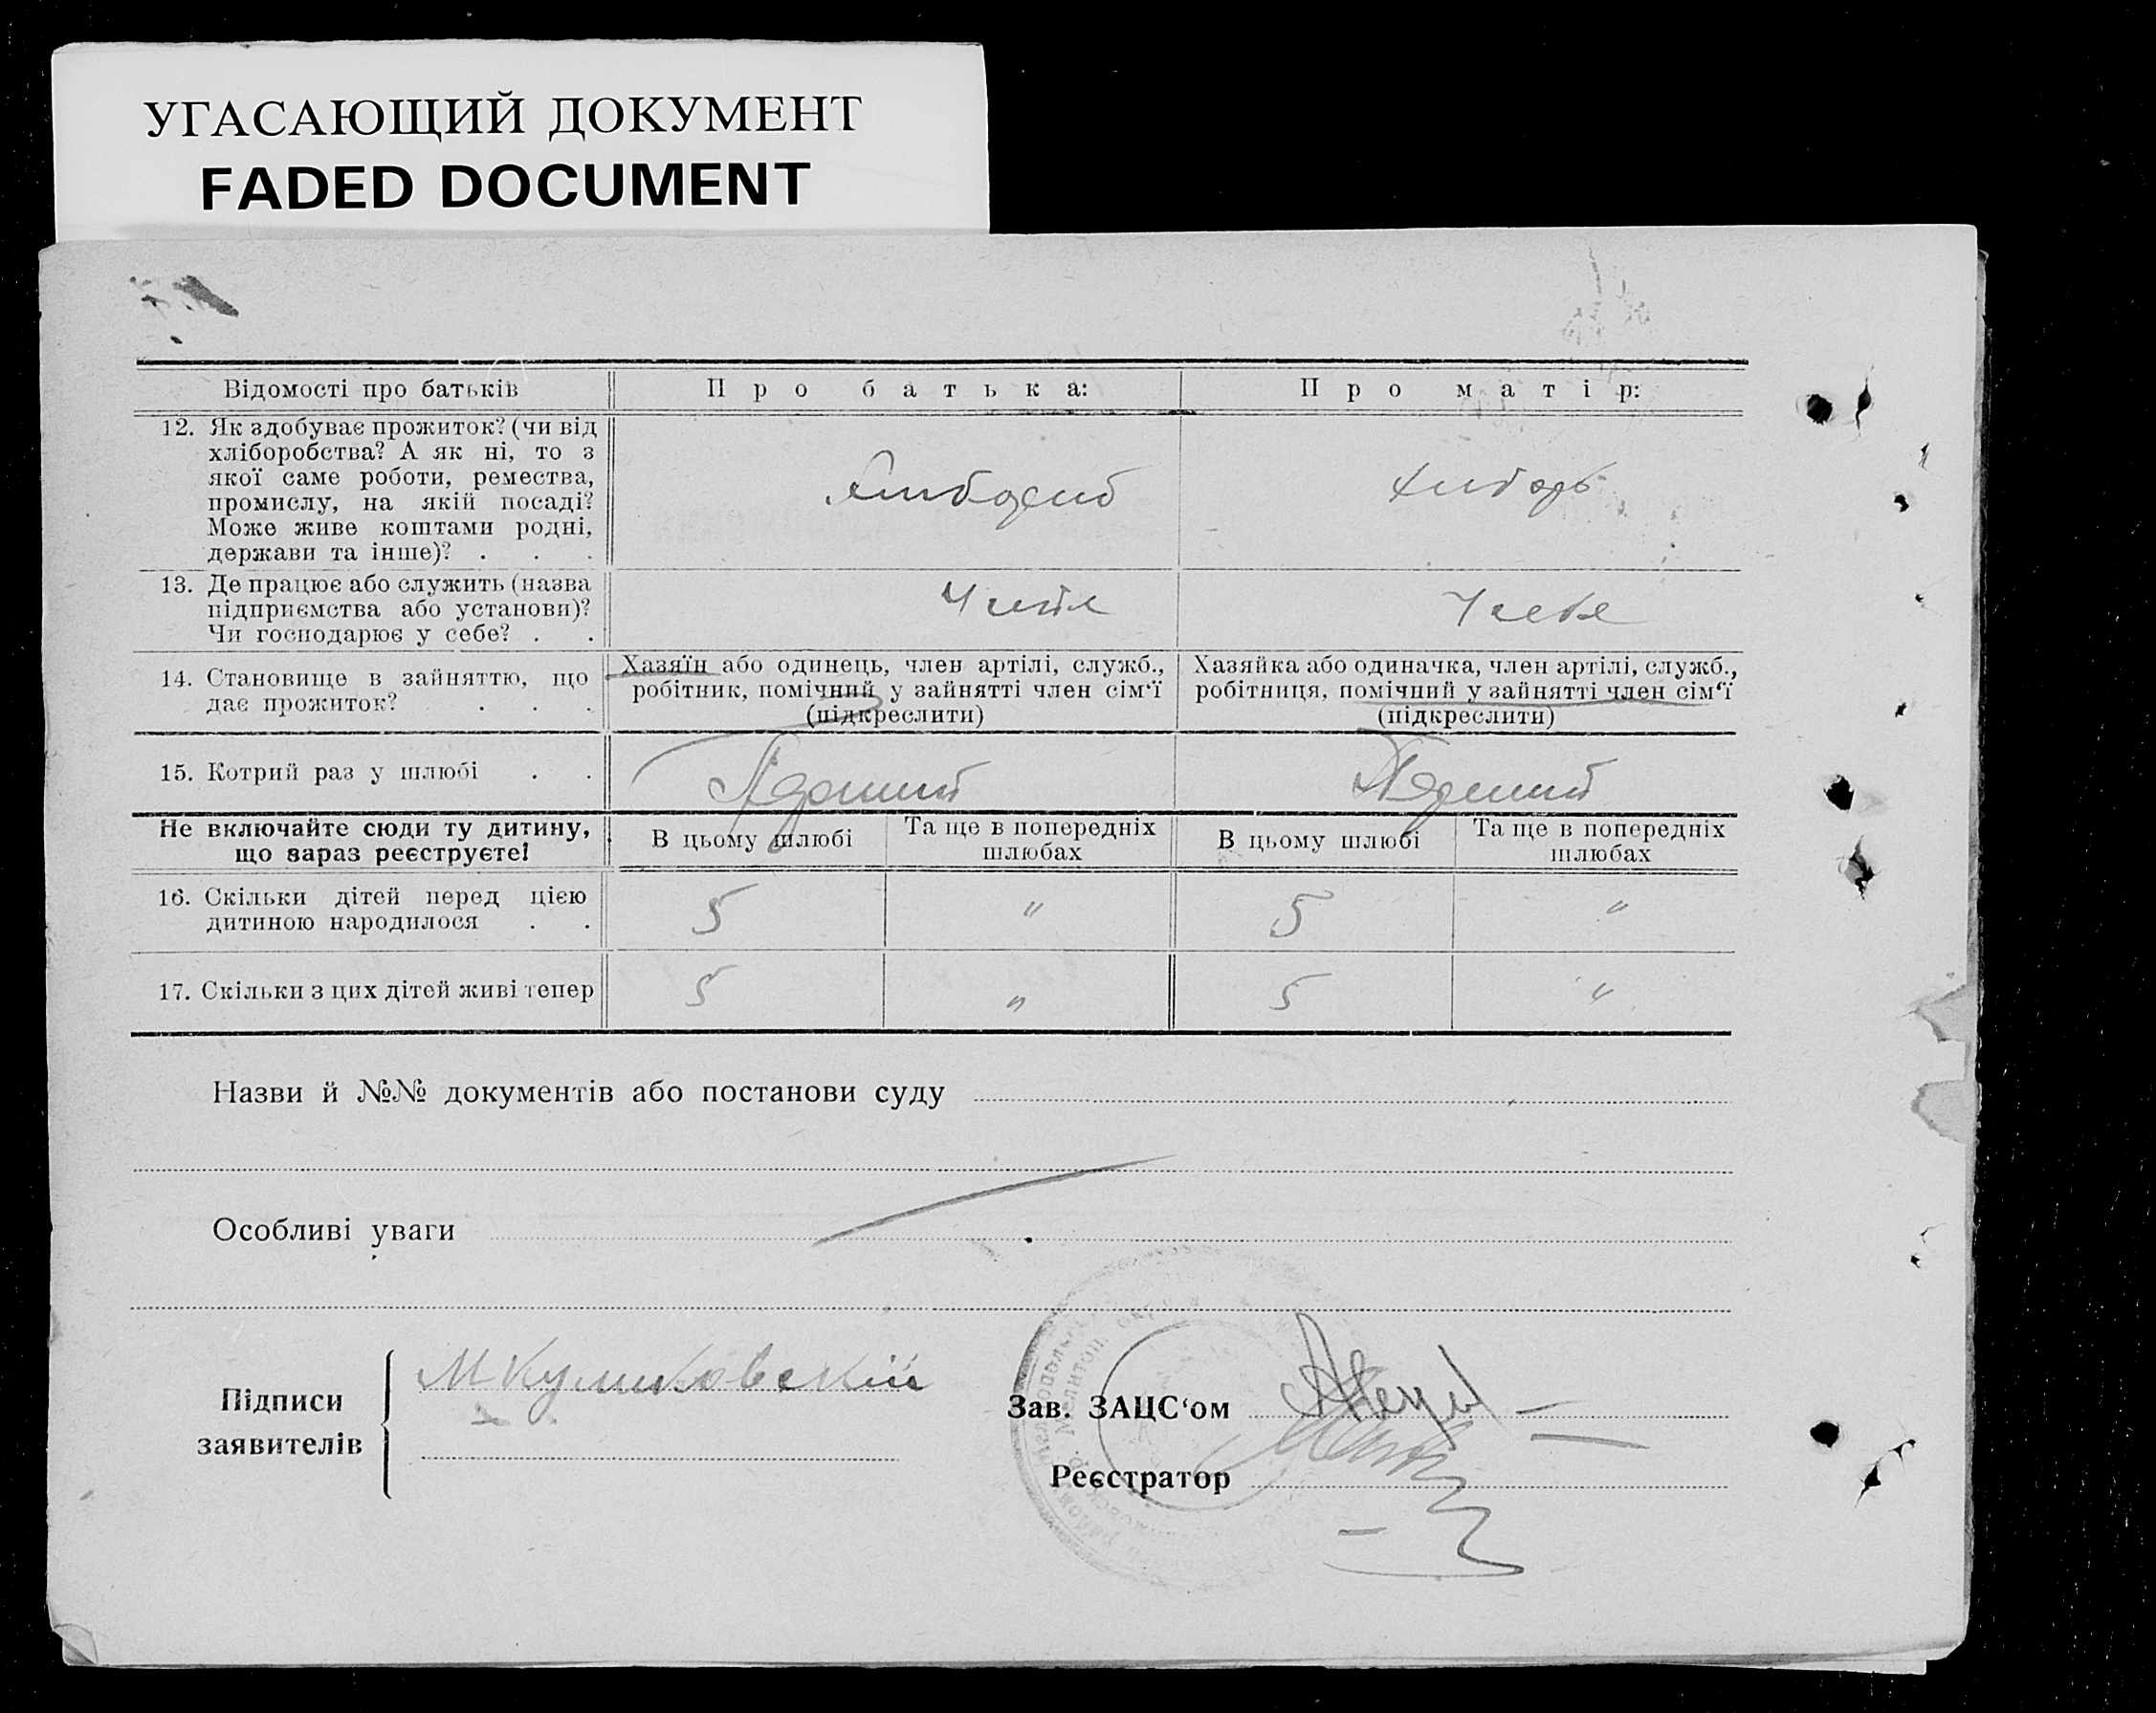 УГАСАЮЩИЙ ДОКУМЕНТ
FADED DOCUMENT
Відомості про батьків
Про батька:
Про матір:
12. Як здобуває прожиток? (чи від
хліборобства? А як ні, то з
якої саме роботи, ремества,
промислу, на якій посаді?
Може живе коштами родні,
держави та інше)? . . .
13. Де працює або служить (назва
підприємства або установи)?
Чи господарює у себе? . .
У себе
14. Становище в зайняттю, що
дає прожиток? . . .
Хазяїн або одинець, член артілі, служб.,
робітник, помічний у зайнятті член сім'ї
(підкреслити)
Хазяйка або одиначка, член артілі, служб.,
робітниця, помічний у зайнятті член сім'ї
(підкреслити)
15. Котрий раз у шлюбі . .
Не включайте сюди ту дитину,
що зараз реєструєте!
В цьому шлюбі
Та ще в попередніх
шлюбах
В цьому шлюбі
Та ще в попередніх
шлюбах
16. Скільки дітей перед цією
дитиною народилося . .
5 " 5 "
17. Скільки з цих дітей живі тепер
5 " 5 "
Назви й №№ документів або постанови суду
Особливі уваги
Підписи
заявителів
М Куликовскій
Зав. ЗАЦС'ом
Реєстратор